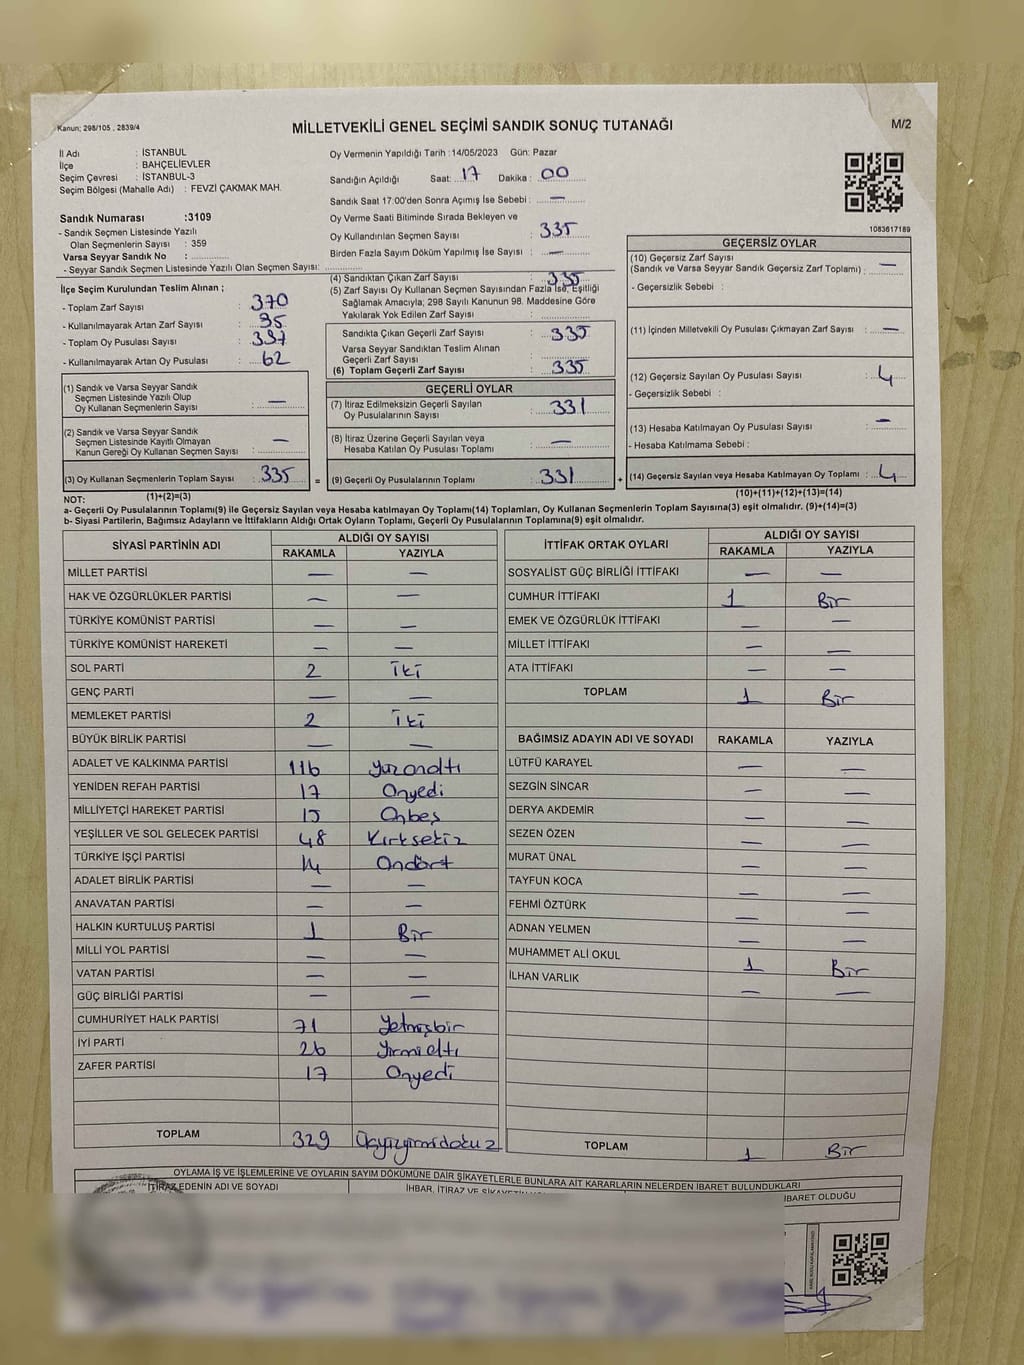 Kanun; 298/105 , 2839/4
MİLLETVEKİLİ GENEL SEÇİMİ SANDIK SONUÇ TUTANAĞI
M/2
İl Adı : İSTANBUL
İlçe : BAHÇELİEVLER
Seçim Çevresi : İSTANBUL-3
Seçim Bölgesi (Mahalle Adı) : FEVZİ ÇAKMAK MAH.
Sandık Numarası :3109
- Sandık Seçmen Listesinde Yazılı
Olan Seçmenlerin Sayısı : 359
Varsa Seyyar Sandık No :
- Seyyar Sandık Seçmen Listesinde Yazılı Olan Seçmen Sayısı:
Oy Vermenin Yapıldığı Tarih :14/05/2023 Gün: Pazar
Sandığın Açıldığı Saat: 17 Dakika : 00
Sandık Saat 17:00'den Sonra Açımış İse Sebebi : —
Oy Verme Saati Bitiminde Sırada Bekleyen ve
Oy Kullandırılan Seçmen Sayısı : 335
Birden Fazla Sayım Döküm Yapılmış İse Sayısı : —
1083617189
İlçe Seçim Kurulundan Teslim Alınan ;
- Toplam Zarf Sayısı : 370
- Kullanılmayarak Artan Zarf Sayısı : 35
- Toplam Oy Pusulası Sayısı : 397
- Kullanılmayarak Artan Oy Pusulası : 62
(1) Sandık ve Varsa Seyyar Sandık
Seçmen Listesinde Yazılı Olup
Oy Kullanan Seçmenlerin Sayısı : —
(2) Sandık ve Varsa Seyyar Sandık
Seçmen Listesinde Kayıtlı Olmayan
Kanun Gereği Oy Kullanan Seçmen Sayısı : —
(3) Oy Kullanan Seçmenlerin Toplam Sayısı : 335
(4) Sandıktan Çıkan Zarf Sayısı : 335
(5) Zarf Sayısı Oy Kullanan Seçmen Sayısından Fazla İse, Eşitliği
Sağlamak Amacıyla; 298 Sayılı Kanunun 98. Maddesine Göre
Yakılarak Yok Edilen Zarf Sayısı :
Sandıkta Çıkan Geçerli Zarf Sayısı : 335
Varsa Seyyar Sandıktan Teslim Alınan
Geçerli Zarf Sayısı :
(6) Toplam Geçerli Zarf Sayısı : 335
GEÇERLİ OYLAR
(7) İtiraz Edilmeksizin Geçerli Sayılan
Oy Pusulalarının Sayısı : 331
(8) İtiraz Üzerine Geçerli Sayılan veya
Hesaba Katılan Oy Pusulası Toplamı : —
= (9) Geçerli Oy Pusulalarının Toplamı : 331 +
GEÇERSİZ OYLAR
(10) Geçersiz Zarf Sayısı
(Sandık ve Varsa Seyyar Sandık Geçersiz Zarf Toplamı) : —
- Geçersizlik Sebebi :
(11) İçinden Milletvekili Oy Pusulası Çıkmayan Zarf Sayısı : —
(12) Geçersiz Sayılan Oy Pusulası Sayısı : 4
- Geçersizlik Sebebi :
(13) Hesaba Katılmayan Oy Pusulası Sayısı : —
- Hesaba Katılmama Sebebi :
(14) Geçersiz Sayılan veya Hesaba Katılmayan Oy Toplamı : 4
NOT: (1)+(2)=(3) (10)+(11)+(12)+(13)=(14)
a- Geçerli Oy Pusulalarının Toplamı(9) ile Geçersiz Sayılan veya Hesaba katılmayan Oy Toplamı(14) Toplamları, Oy Kullanan Seçmenlerin Toplam Sayısına(3) eşit olmalıdır. (9)+(14)=(3)
b- Siyasi Partilerin, Bağımsız Adayların ve İttifakların Aldığı Ortak Oyların Toplamı, Geçerli Oy Pusulalarının Toplamına(9) eşit olmalıdır.
SİYASİ PARTİNİN ADI ALDIĞI OY SAYISI
RAKAMLA YAZIYLA
MİLLET PARTİSİ — —
HAK VE ÖZGÜRLÜKLER PARTİSİ — —
TÜRKİYE KOMÜNİST PARTİSİ — —
TÜRKİYE KOMÜNİST HAREKETİ — —
SOL PARTİ 2 İki
GENÇ PARTİ — —
MEMLEKET PARTİSİ 2 İki
BÜYÜK BİRLİK PARTİSİ — —
ADALET VE KALKINMA PARTİSİ 116 Yüzonaltı
YENİDEN REFAH PARTİSİ 17 Onyedi
MİLLİYETÇİ HAREKET PARTİSİ 15 Onbeş
YEŞİLLER VE SOL GELECEK PARTİSİ 48 Kırksekiz
TÜRKİYE İŞÇİ PARTİSİ 14 Ondört
ADALET BİRLİK PARTİSİ — —
ANAVATAN PARTİSİ — —
HALKIN KURTULUŞ PARTİSİ 1 Bir
MİLLİ YOL PARTİSİ — —
VATAN PARTİSİ — —
GÜÇ BİRLİĞİ PARTİSİ — —
CUMHURİYET HALK PARTİSİ 71 Yetmişbir
İYİ PARTİ 26 Yirmialtı
ZAFER PARTİSİ 17 Onyedi
TOPLAM 329 Üçyüzyirmidokuz
İTTİFAK ORTAK OYLARI ALDIĞI OY SAYISI
RAKAMLA YAZIYLA
SOSYALİST GÜÇ BİRLİĞİ İTTİFAKI — —
CUMHUR İTTİFAKI 1 Bir
EMEK VE ÖZGÜRLÜK İTTİFAKI — —
MİLLET İTTİFAKI — —
ATA İTTİFAKI — —
TOPLAM 1 Bir
BAĞIMSIZ ADAYIN ADI VE SOYADI RAKAMLA YAZIYLA
LÜTFÜ KARAYEL — —
SEZGİN SİNCAR — —
DERYA AKDEMİR — —
SEZEN ÖZEN — —
MURAT ÜNAL — —
TAYFUN KOCA — —
FEHMİ ÖZTÜRK — —
ADNAN YELMEN — —
MUHAMMET ALİ OKUL 1 Bir
İLHAN VARLIK — —
TOPLAM 1 Bir
OYLAMA İŞ VE İŞLEMLERİNE VE OYLARIN SAYIM DÖKÜMÜNE DAİR ŞİKAYETLERLE BUNLARA AİT KARARLARIN NELERDEN İBARET BULUNDUKLARI
İTİRAZ EDENİN ADI VE SOYADI
İHBAR, İTİRAZ VE
İBARET OLDUĞU